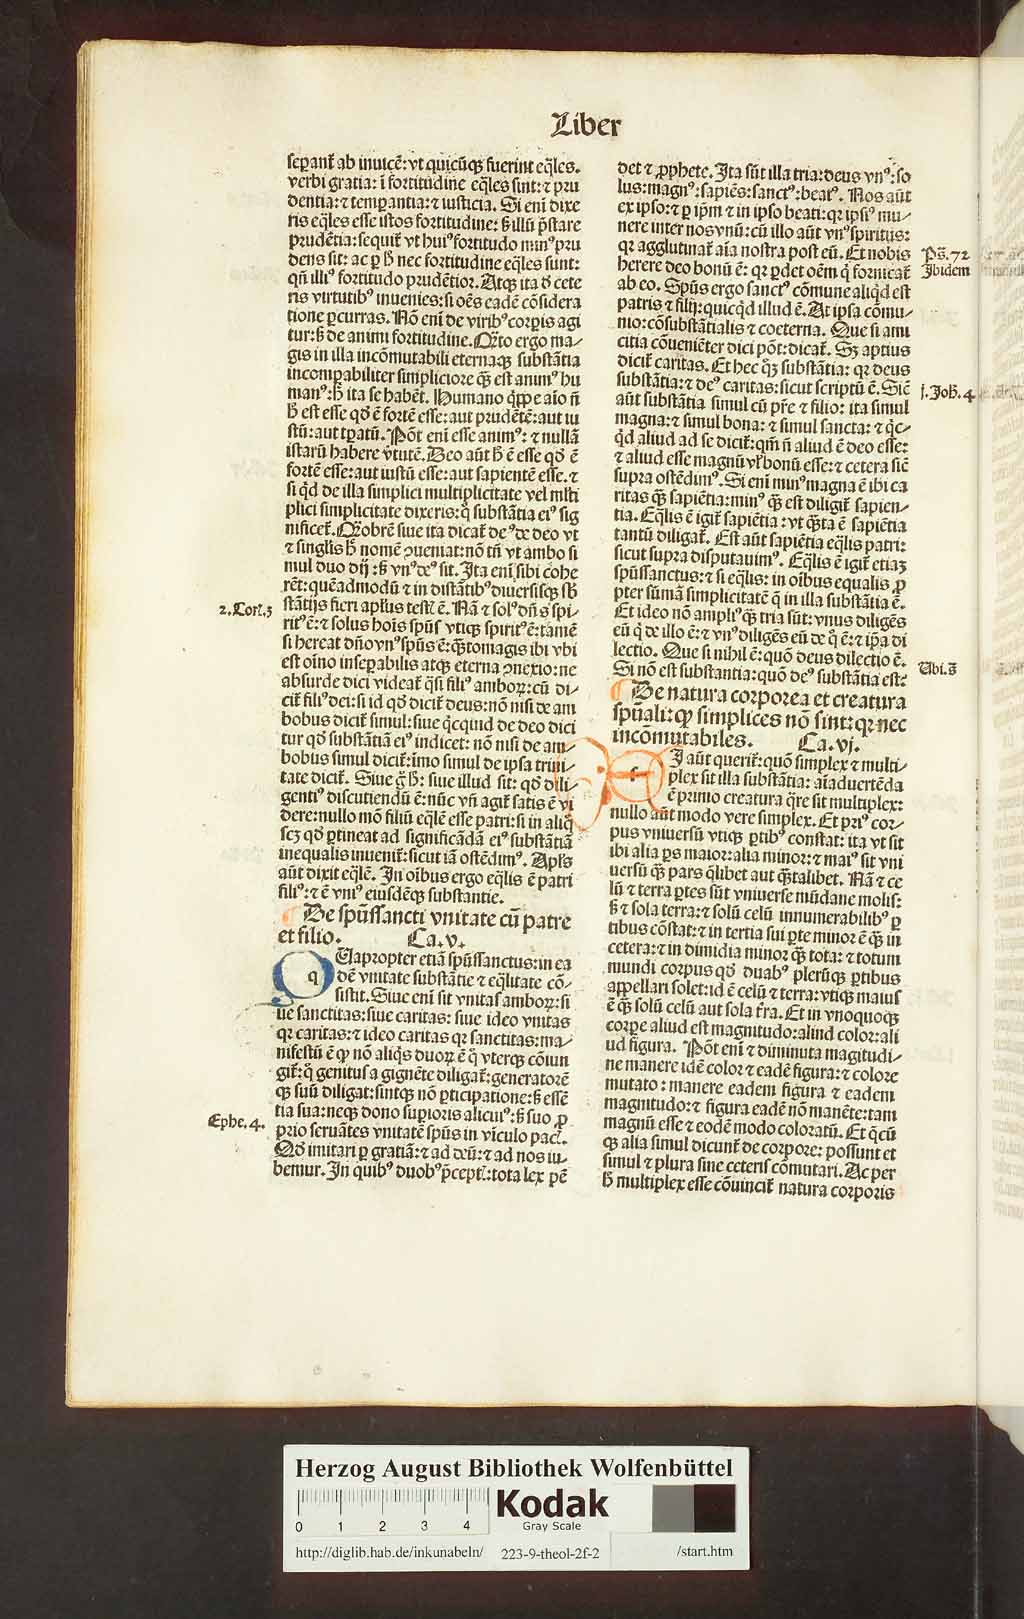 Liber
seꝑant᷑ ab inuicē: vt quicūqꝫ fuerint eq̄les.
verbi gratia: ī fortitudine eq̄les sint: ⁊ pru
dentia: ⁊ temꝑantia: ⁊ iusticia. Si eni᷑ dixe
ris eq̄les esse istos fortitudine: sꝫ illū p̄stare
prudētia: sequit᷑ vt huiꝰ fortitudo minꝰ pru
dens sit: ac ꝑ hͦ nec fortitudine eq̄les sunt:
qn̄ illiꝰ fortitudo prudētior. Atqꝫ ita ď cete
ris virtutibꝰ inuenies: si oēs eadē cōsidera
tione ꝑcurras. Nō eni᷑ de viribꝰ corꝑis agi
tur: sꝫ de animi fortitudine. Qꝫto ergo ma⸗
gis in illa incōmutabili eternaqꝫ substātia
incomꝑabiliter simpliciore qꝫ̄ est animꝰ hu
manꝰ: hͦ ita se habēt. Humano q̄ppe aīo n̄
hͦ est esse qď ē fortē esse: aut prudētē: aut iu
stū: aut tꝑatū. Pōt eni᷑ esse animꝰ: ⁊ nullā
istarū habere v̓tutē. Deo aūt hͦ ē esse qď ē
fortē esse: aut iustū esse: aut sapientē esse. ⁊
si qd̓ de illa simplici multiplicitate vel ml̓ti
plici simplicitate dixeris: q̄ substātia eiꝰ sig
nificet᷑. Qꝫobrē siue ita dicat᷑ deꝰ de deo vt
⁊ singl̓is hͦ nomē ꝯueniat: nō tn̄ vt ambo si
mul duo dij: sꝫ vnꝰ deꝰ sit. Ita eni᷑ sibi cohe
rēt: quēadmodū ⁊ in distātibꝰ diuersisqꝫ sb̄
stātijs fieri apl̓us testis ē. Nā ⁊ solꝰ dn̄s spi⸗
ritꝰ ē: ⁊ solus hoīs spūs vtiqꝫ spiritꝰ ē: tamē
si hereat dn̄o vnꝰ spūs ē: qꝫ̄tomagis ibi vbi
est oīno insepabilis atqꝫ eterna ꝯnexio: ne
absurde dici videat᷑ q̄si filiꝰ amboꝝ: cū di⸗
cit᷑ filiꝰ dei: si id qď dicit᷑ deus: nō nisi de am
bobus dicit᷑ simul: siue q̄cquid de deo dici
tur qď substātiā eiꝰ indicet: nō nisi de am⸗
bobus simul dicit᷑: īmo simul de ipsa trini⸗
tate dicit᷑. Siue g̊ hͦ: siue illud sit: qď dili⸗
gentiꝰ discutiendū ē: nūc vn̄ agit᷑ satis ē vi
dere: nullo mō filiū eq̄lē esse patri: si in aliq̊
scꝫ qď ꝑtineat ad significādā eiꝰ substātiā
inequalis inuenit᷑: sicut iā ostēdimꝰ. Apl̓s
aūt dixit eq̄lē. In oībus ergo eq̄lis ē patri
filiꝰ: ⁊ ē vniꝰ eiusdēqꝫ substantie.
De spūssancti vnitate cū patre
et filio. Ca. v.
QUapropter etiā spūssanctus: in ea
dē vnitate substātie ⁊ eq̄litate cō⸗
sistit. Siue eni᷑ sit vnitas amboꝝ: si
ue sanctitas: siue caritas: siue ideo vnitas
qꝛ caritas: ⁊ ideo caritas qꝛ sanctitas: ma⸗
nifestū ē ꝙ nō aliq̊s duoꝝ ē q̊ vterqꝫ cōiun
git᷑: q̊ genitus a gignēte diligat᷑: generatorē
qꝫ suū diligat: sintqꝫ nō ꝑticipatione: sꝫ essē
tia sua: neqꝫ dono suꝑioris alicuiꝰ: sꝫ suo ꝓ
prio seruātes vnitatē spūs in vīculo pacis.
Qď imitari ꝑ gratiā: ⁊ ad deū: ⁊ ad nos iu⸗
bemur. In quibꝰ duobꝰ p̄ceptis: tota lex pē
2. Cori. 3
Ephe. 4.
det ⁊ ꝓphete. Ita sūt illa tria: deus vnꝰ: so
lus: magnꝰ: sapiēs: sanctꝰ: beatꝰ. Nos aūt
ex ipso: ⁊ ꝑ ip̄m ⁊ in ipso beati: qꝛ ipsiꝰ mu⸗
nere inter nos vnū: cū illo aūt vnꝰ spiritus:
qꝛ agglutinat᷑ aīa nostra post eū. Et nobis
herere deo bonū ē: qꝛ ꝑdet oēm q̊ fornicat᷑
ab eo. Spūs ergo sanctꝰ cōmune aliqď est
patris ⁊ filij: quicqď illud ē. At ipsa cōmu⸗
nio: cōsubstātialis ⁊ coeterna. Que si ami
citia cōueniēter dici pōt: dicat᷑. Sꝫ aptius
dicit᷑ caritas. Et hec qꝫ substātia: qꝛ deus
substātia: ⁊ deꝰ caritas: sicut scriptū ē. Sic
aūt substātia simul cū pr̄e ⁊ filio: ita simul
magna: ⁊ simul bona: ⁊ simul sancta: ⁊ q̊c⸗
qď aliud ad se dicit᷑: qm̄ n̄ aliud ē deo esse:
⁊ aliud esse magnū vl̓ bonū esse: ⁊ cetera sic
supra ostēdimꝰ. Si eni᷑ minꝰ magna ē ibi ca
ritas qꝫ̄ sapiētia: minꝰ qꝫ̄ est diligit᷑ sapien⸗
tia. Eq̄lis ē igit᷑ sapiētia: vt qꝫ̄ta ē sapiētia
tantū diligat᷑. Est aūt sapiētia eq̄lis patri:
sicut supra disputauimꝰ. Eq̄lis ē igit᷑ etiaꝫ
spūssanctus: ⁊ si eq̄lis: in oībus equalis ꝓ
pter sūmā simplicitatē q̄ in illa substātia ē.
Et ideo nō ampliꝰ qꝫ̄ tria sūt: vnus diligēs
eū q̊ de illo ē: ⁊ vnꝰ diligēs eū de q̊ ē: ⁊ ip̄a di
lectio. Que si nihil ē: quō deus dilectio ē.
Si nō est substantia: quō deꝰ substātia est:
De natura corporea et creatura
spūali: ꝙ simplices nō sint: qꝛ nec
incōmutabiles. Ca. vj.
SI aūt querit᷑: quō simplex ⁊ multi⸗
plex sit illa substātia: aīaduertēda
ē primo creatura q̄re sit multiplex:
nullo aūt modo vere simplex. Et priꝰ cor⸗
pus vniuersū vtiqꝫ ꝑtibꝰ constat: ita vt sit
ibi alia ꝑs maior: alia minor: ⁊ maiꝰ sit vni
uersū qꝫ̄ pars q̄libet aut qꝫ̄talibet. Nā ⁊ ce
lū ⁊ terra ꝑtes sūt vniuerse mūdane molis:
sꝫ ⁊ sola terra: ⁊ solū celū innumerabilibꝰ ꝑ
tibus cōstat: ⁊ in tertia sui ꝑte minor ē qꝫ̄ in
cetera: ⁊ in dimidia minor qꝫ̄ tota: ⁊ totum
mundi corpus qď duabꝰ plerūqꝫ ꝑtibus
appellari solet: id ē celū ⁊ terra: vtiqꝫ maius
ē qꝫ̄ solū celū aut sola t̓ra. Et in vnoquoqꝫ
corꝑe aliud est magnitudo: aliud color: ali
ud figura. Pōt eni᷑ ⁊ diminuta magitudi⸗
ne manere idē color ⁊ eadē figura: ⁊ colore
mutato: manere eadem figura ⁊ eadem
magnitudo: ⁊ figura eadē nō manēte: tam
magnū esse ⁊ eodē modo coloratū. Et q̄cū
qꝫ alia simul dicunt᷑ de corpore: possunt et
simul ⁊ plura sine ceteris cōmutari. Ac per
hͦ multiplex esse cōuincit᷑ natura corporis
Ps̄. 72
Ibidem
j. Joh̄. 4
Ubi. s̄
Herzog August Bibliothek Wolfenbüttel
0 1 2 3 4
Kodak
Gray Scale
http://diglib.hab.de/inkunabeln/ 223-9-theol-2f-2 /start.htm